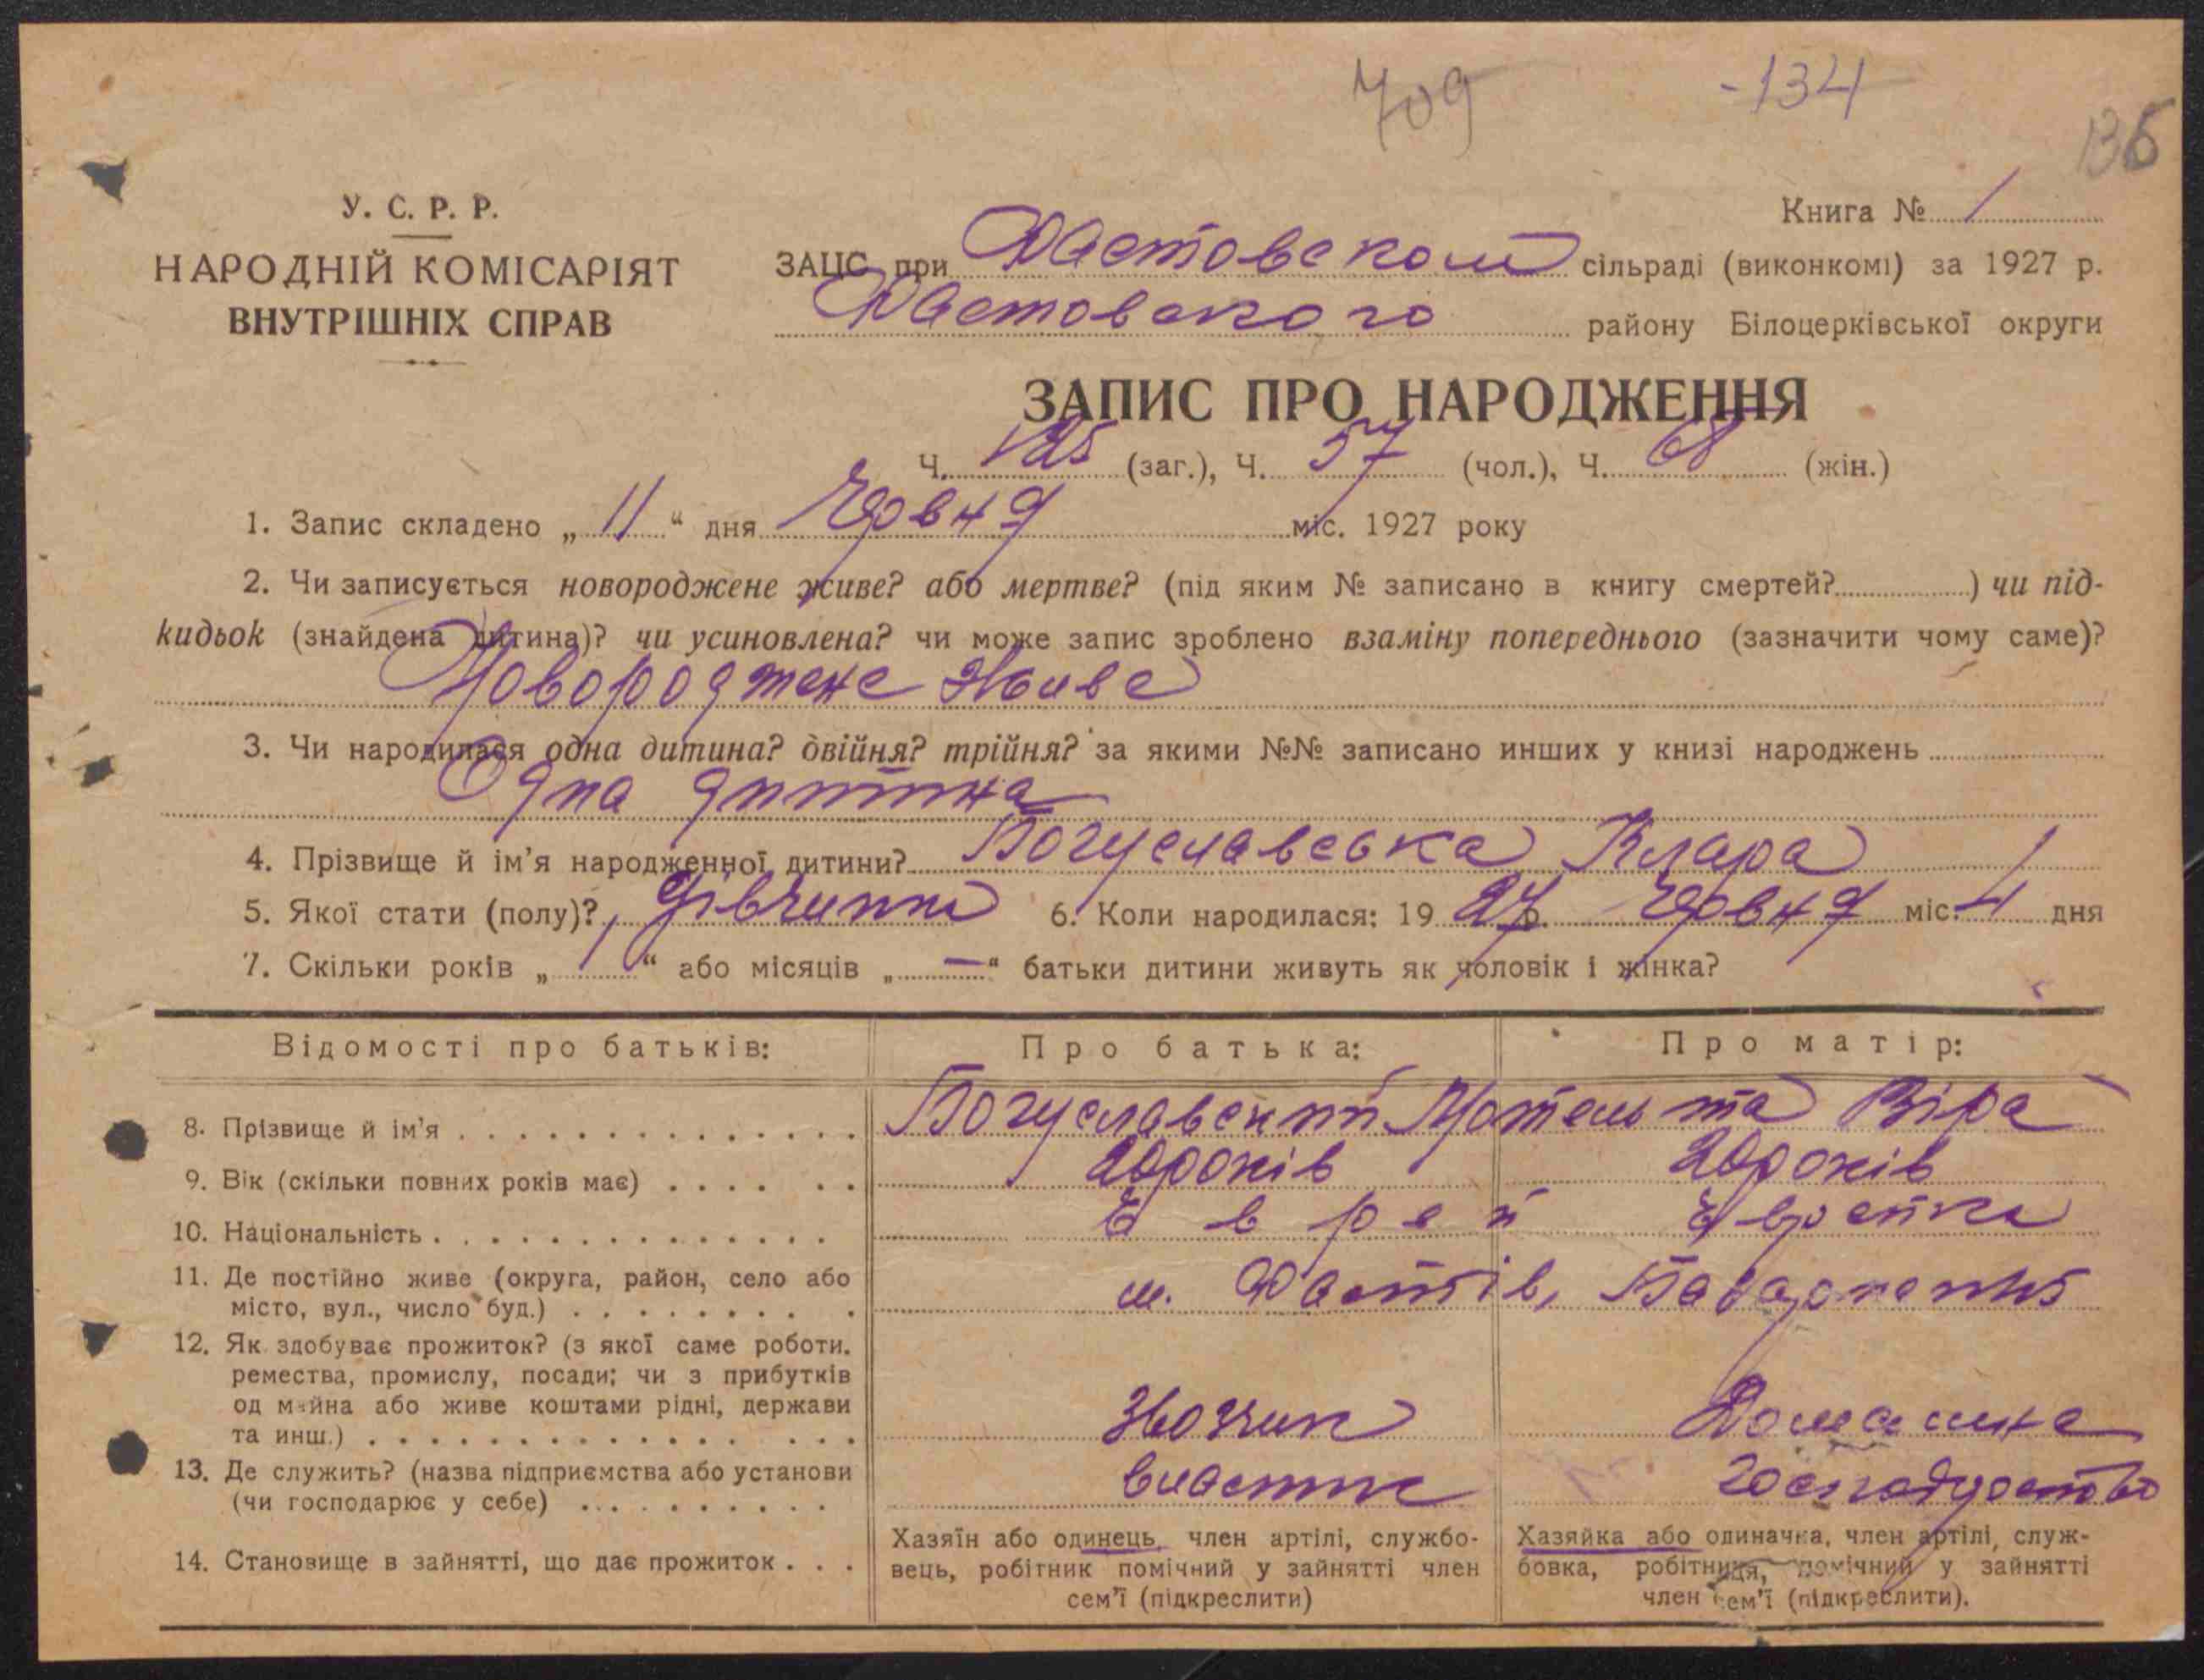 709 -134
136
У. С. Р. Р.
НАРОДНІЙ КОМІСАРІЯТ
ВНУТРІШНІХ СПРАВ
Книга № 1
ЗАЦС при Фастовском сільраді (виконкомі) за 1927 р.
Фастовского району Білоцерківської округи
ЗАПИС ПРО НАРОДЖЕННЯ
Ч. 125 (заг.), Ч. 57 (чол.), Ч. 68 (жін.)
1. Запис складено „ 11 “ дня Червня міс. 1927 року
2. Чи записується новороджене живе? або мертве? (під яким № записано в книгу смертей?) чи під-
кидьок (знайдена дитина)? чи усиновлена? чи може запис зроблено взаміну попереднього (зазначити чому саме)?
Новороджене живе
3. Чи народилася одна дитина? двійня? трійня? за якими №№ записано инших у книзі народжень
Одна дитина
4. Прізвище й ім’я народженної дитини? Богуславська Клара
5. Якої стати (полу)? Дівчинка 6. Коли народилася: 19 27 р. Червня міс. 4 дня
7. Скільки років „ 1 “ або місяців „ — “ батьки дитини живуть як чоловік і жінка?
Відомості про батьків: Про батька: Про матір:
8. Прізвище й ім’я Богуславский Мотель та Віра
9. Вік (скільки повних років має) 20 років 20 років
10. Національність Еврей Еврейка
11. Де постійно живе (округа, район, село або
місто, вул., число буд.) м. Фастів,
12. Як здобуває прожиток? (з якої саме роботи.
ремества, промислу, посади; чи з прибутків
од майна або живе коштами рідні, держави
та инш.) Звозчик Домашне
13. Де служить? (назва підприємства або установи
(чи господарює у себе) господарство
14. Становище в зайнятті, що дає прожиток
Хазяїн або одинець, член артілі, службо-
вець, робітник помічний у зайнятті член
сем’ї (підкреслити)
Хазяйка або одиначка, член артілі, служ-
бовка, робітниця, помічний у зайнятті
член сем’ї (підкреслити).